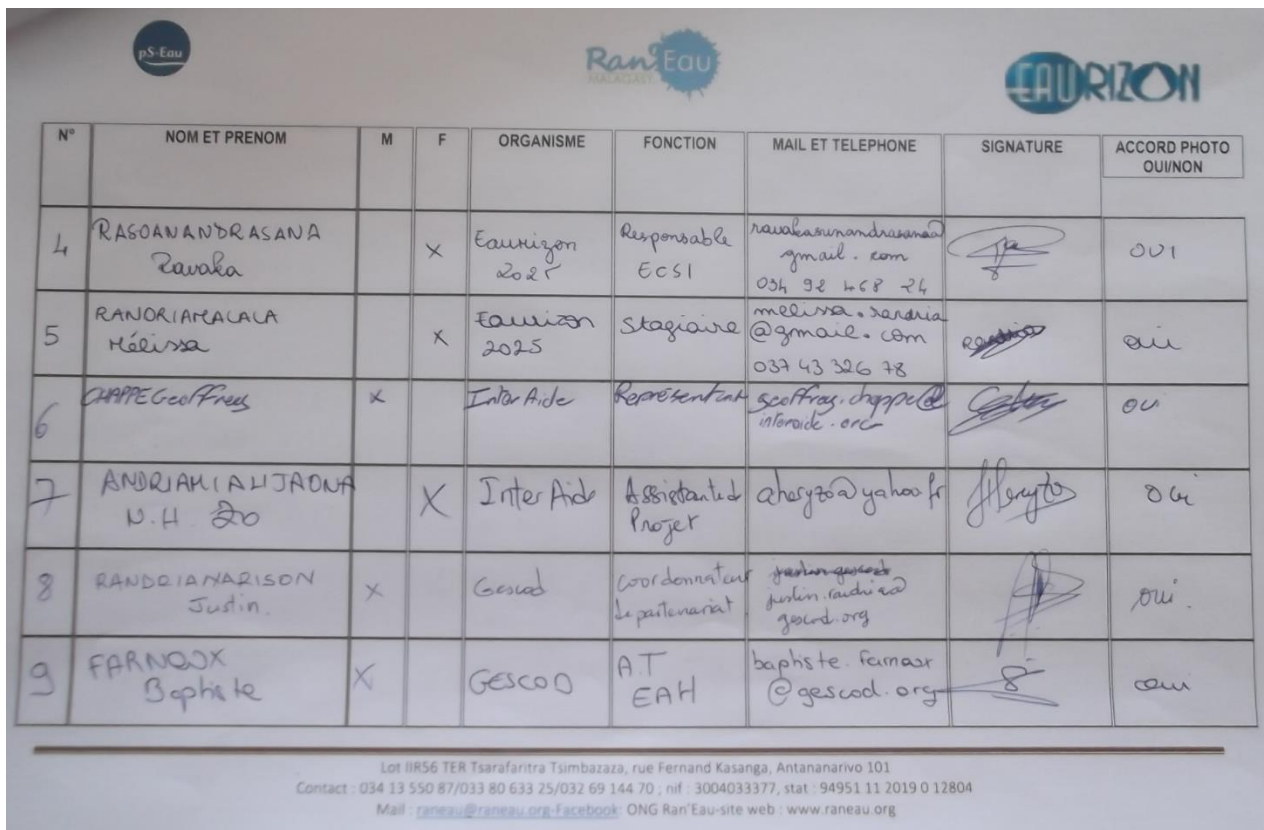 pS-Eau
Ran'Eau
MALAGASY
EAURIZON
N° NOM ET PRENOM M F ORGANISME FONCTION MAIL ET TELEPHONE SIGNATURE ACCORD PHOTO
OUI/NON
4 RASOANANDRASANA Ravaka X Eaurizon 2025 Responsable ECSI gmail.com 034 92 468 24 OUI
5 Mélissa X Eaurizon 2025 Stagiaire melissa.randria @gmail.com 037 43 326 78 oui
6 CHAPPE Geoffrey X Inter Aide Représentant geoffrey.chappe@ interaide.org OUI
7 N.H. Zo X Inter Aide Assistante de Projet aheryzo@yahoo.fr Oui
8 RANDRIANARISON Justin. X Gescod coordonnateur de partenariat justin.randria@ gescod.org oui.
9 Baptiste X GESCOD A.T EAH @gescod.org oui
Lot IIR56 TER Tsarafaritra Tsimbazaza, rue Fernand Kasanga, Antananarivo 101
Contact : 034 13 550 87/033 80 633 25/032 69 144 70 ; nif : 3004033377, stat : 94951 11 2019 0 12804
Mail : raneau@raneau.org-Facebook: ONG Ran'Eau-site web : www.raneau.org